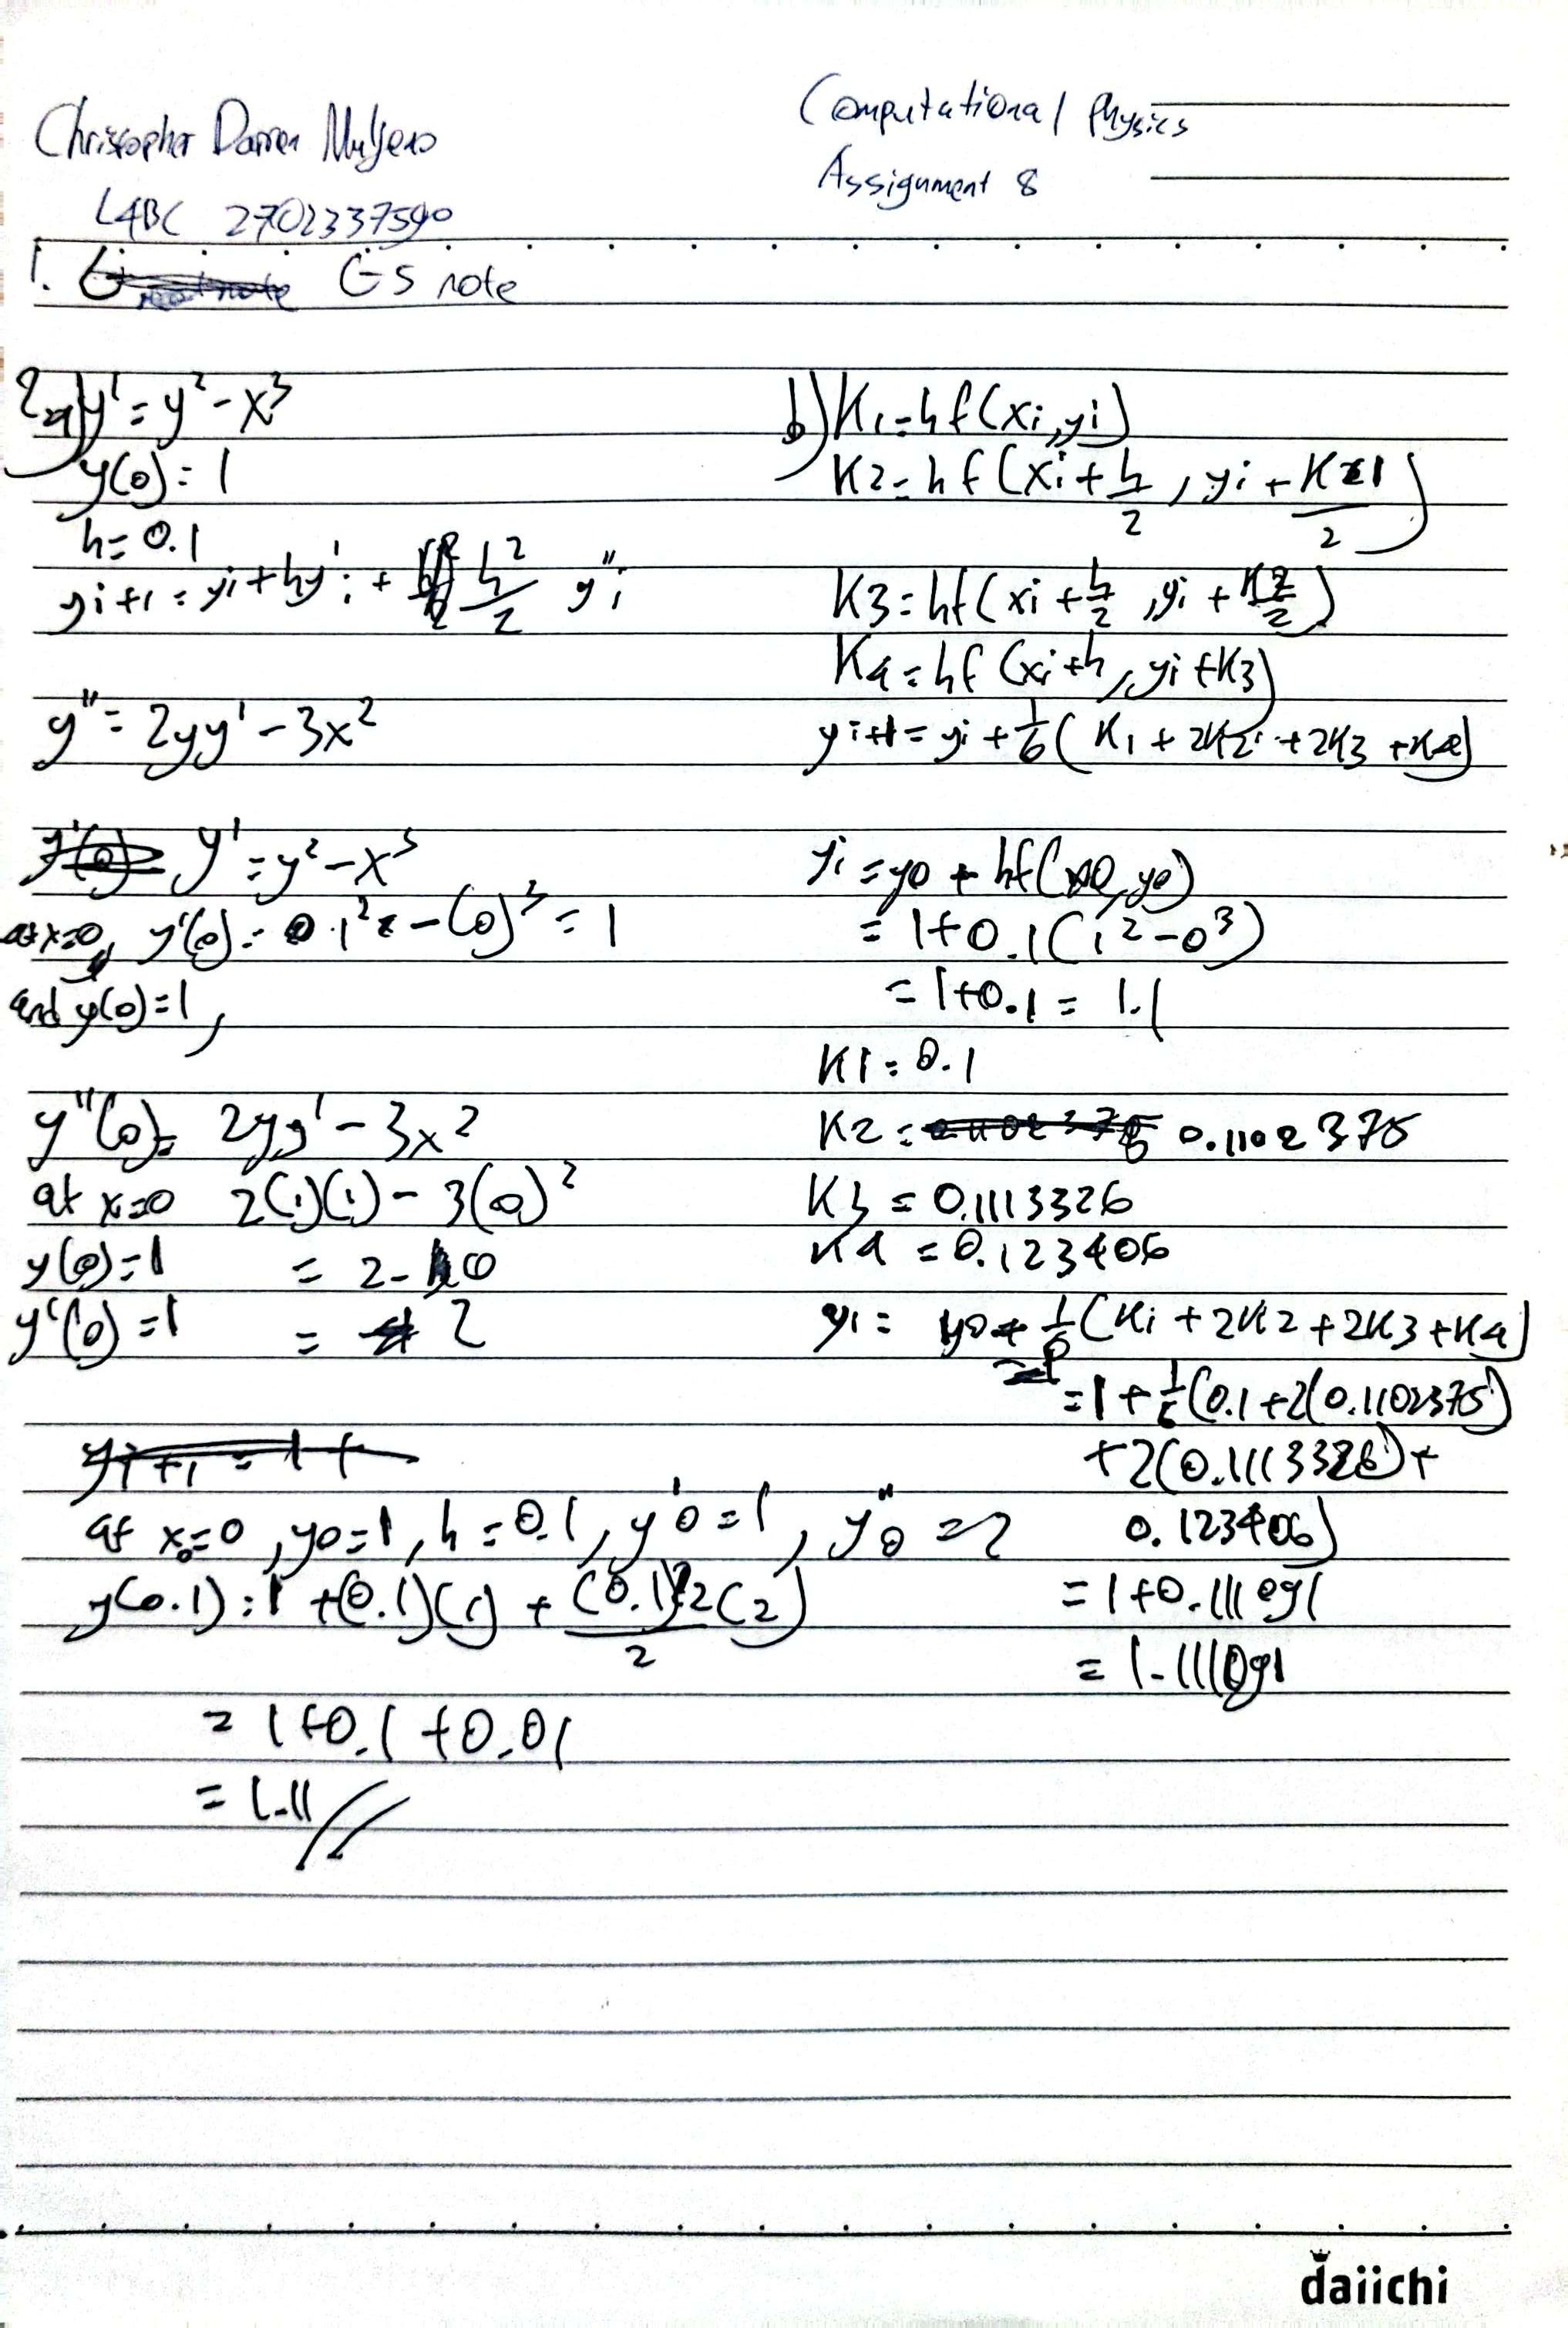 Christopher Darren
L4BC 2702337590
Computational Physics
Assignment 8
1. GS note
2a) y' = y² - x³
y(0) = 1
h = 0.1
yi+1 = yi + hy'i + h²/2 y''i
y'' = 2yy' - 3x²
y' = y² - x³
at x=0, y'(0) = 1² - (0)³ = 1
and y(0)=1,
y''(0) = 2yy' - 3x²
at x=0 2(1)(1) - 3(0)²
y(0)=1 = 2-0
y'(0)=1 = 2
at x0=0, y0=1, h=0.1, y'0=1, y''0=2
y(0.1) = 1 + (0.1)(1) + (0.1)^2(2)/2
= 1+0.1+0.01
= 1.11
b) K1=hf(xi,yi)
K2=hf(xi+h/2, yi+K1/2)
K3=hf(xi+h/2, yi+K2/2)
K4=hf(xi+h, yi+K3)
yi+1=yi+1/6(K1+2K2+2K3+K4)
yi = y0 + hf(x0,y0)
= 1+0.1(1²-0³)
= 1+0.1 = 1.1
K1=0.1
K2= 0.1102375
K3 = 0.1113326
K4 = 0.123406
y1 = y0+1/6(Ki+2K2+2K3+K4)
=1+1/6(0.1+2(0.1102375)
+2(0.1113326)+
0.123406)
= 1+0.111091
= 1.111091
daiichi